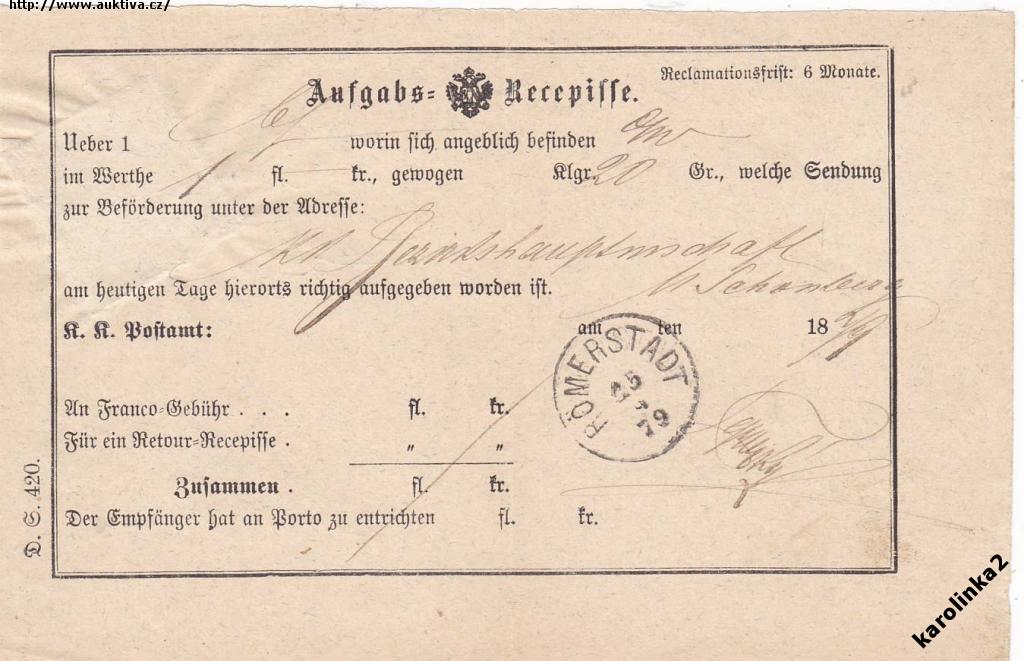 http://www.auktiva.cz/
Reclamationsfrist: 6 Monate.
Aufgabs= Recepisse.
Ueber 1 worin sich angeblich befinden
im Werthe 1 fl. kr., gewogen Klgr. 20 Gr., welche Sendung
zur Beförderung unter der Adresse:
Bezirkshauptmschaft
am heutigen Tage hierorts richtig aufgegeben worden ist.
M Schönberg
K. K. Postamt: am ten 18
RÖMERSTADT
79
An Franco=Gebühr . . . fl. kr.
Für ein Retour=Recepisse . " "
Zusammen . fl. kr.
Der Empfänger hat an Porto zu entrichten fl. kr.
D. S. 420.
karolinka2